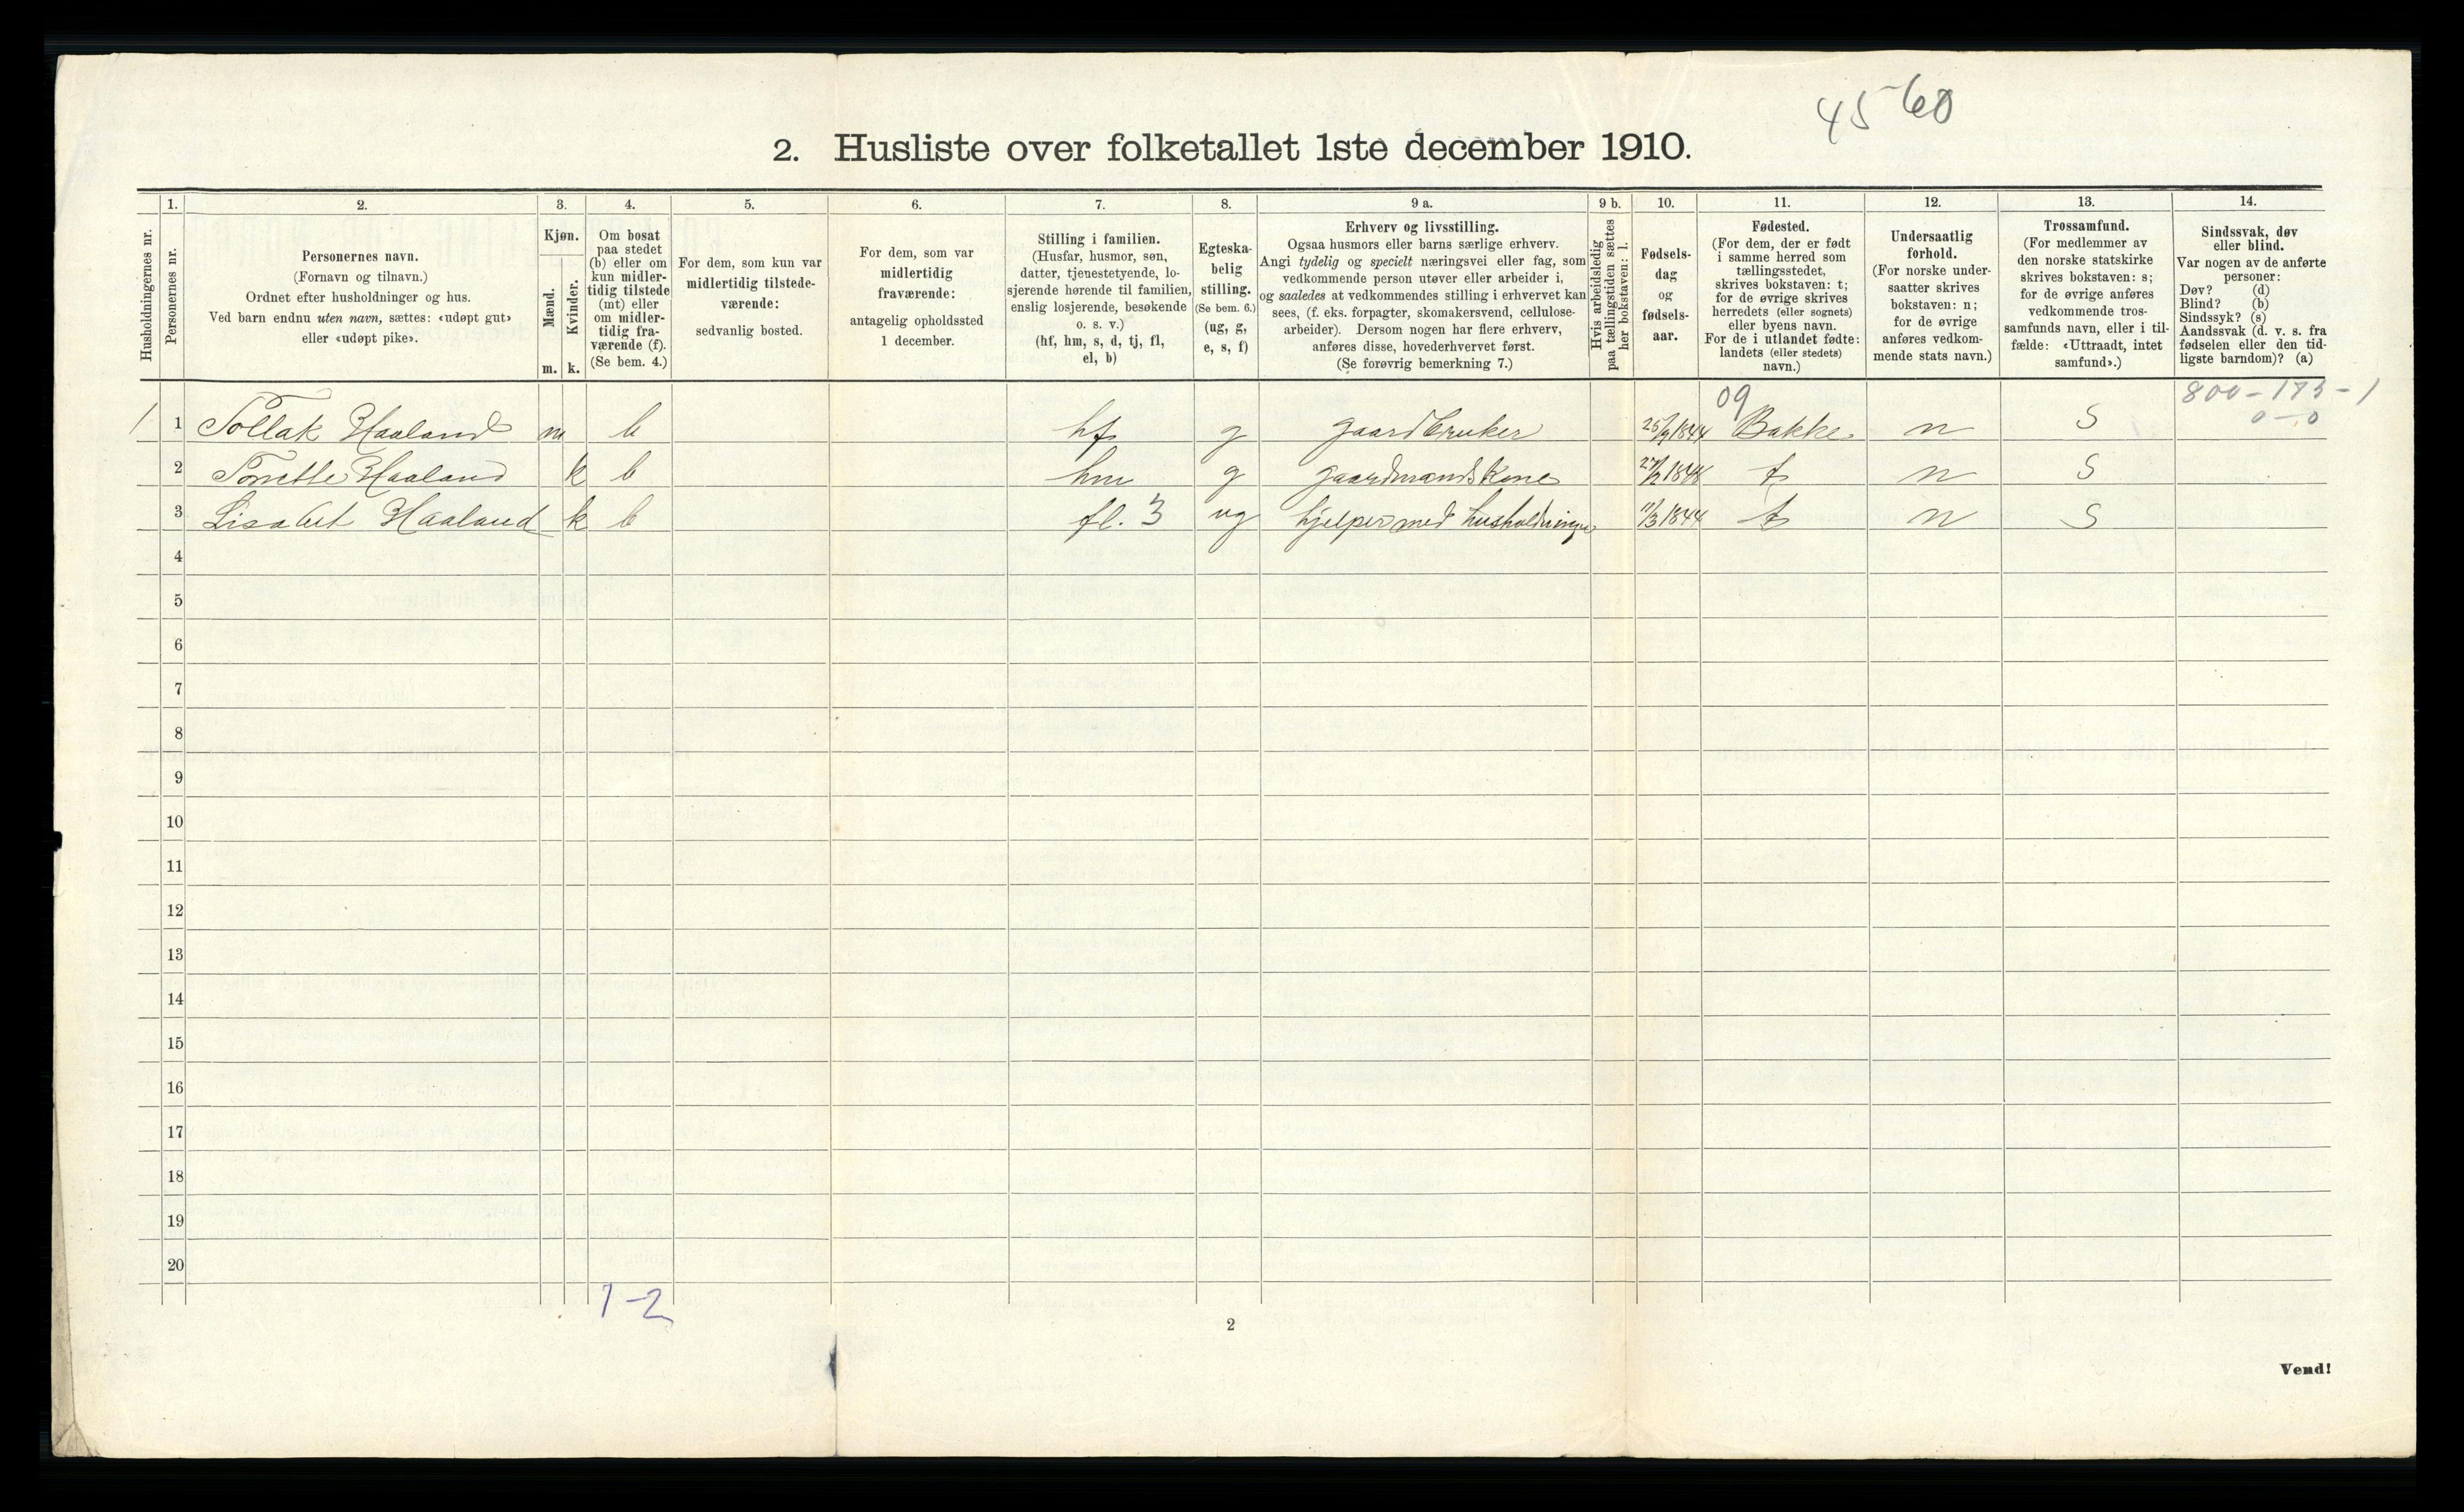 45-60
2. Husliste over folketallet 1ste december 1910.
Husholdningernes nr.
1.
Personernes nr.
2.
Personernes navn.
(Fornavn og tilnavn.)
Ordnet efter husholdninger og hus.
Ved barn endnu uten navn, sættes: «udøpt gut»
eller «udøpt pike».
3.
Kjøn.
Mænd.
Kvinder.
m. k.
4.
Om bosat
paa stedet
(b) eller om
kun midler-
tidig tilstede
(mt) eller
om midler-
tidig fra-
værende (f).
(Se bem. 4.)
5.
For dem, som kun var
midlertidig tilstede-
værende:
sedvanlig bosted.
6.
For dem, som var
midlertidig
fraværende:
antagelig opholdssted
1 december.
7.
Stilling i familien.
(Husfar, husmor, søn,
datter, tjenestetyende, lo-
sjerende hørende til familien,
enslig losjerende, besøkende
o. s. v.)
(hf, hm, s, d, tj, fl,
el, b)
8.
Egteska-
belig
stilling.
(Se bem. 6.)
(ug, g,
e, s, f)
9 a.
Erhverv og livsstilling.
Ogsaa husmors eller barns særlige erhverv.
Angi tydelig og specielt næringsvei eller fag, som
vedkommende person utøver eller arbeider i,
og saaledes at vedkommendes stilling i erhvervet kan
sees, (f. eks. forpagter, skomakersvend, cellulose-
arbeider). Dersom nogen har flere erhverv,
anføres disse, hovederhvervet først.
(Se forøvrig bemerkning 7.)
9 b.
Hvis arbeidsledig
paa tællingstiden sættes
her bokstaven: l.
10.
Fødsels-
dag
og
fødsels-
aar.
11.
Fødested.
(For dem, der er født
i samme herred som
tællingsstedet,
skrives bokstaven: t;
for de øvrige skrives
herredets (eller sognets)
eller byens navn.
For de i utlandet fødte:
landets (eller stedets)
navn.)
12.
Undersaatlig
forhold.
(For norske under-
saatter skrives
bokstaven: n;
for de øvrige
anføres vedkom-
mende stats navn.)
13.
Trossamfund.
(For medlemmer av
den norske statskirke
skrives bokstaven: s;
for de øvrige anføres
vedkommende tros-
samfunds navn, eller i til-
fælde: «Uttraadt, intet
samfund».)
14.
Sindssvak, døv
eller blind.
Var nogen av de anførte
personer:
Døv? (d)
Blind? (b)
Sindssyk? (s)
Aandssvak (d. v. s. fra
fødselen eller den tid-
ligste barndom)? (a)
09 800-173-1
0-0
1 1 Tollak Haaland m b hf g gaardbruker 1844 Bakke n S
2 Haaland k b hm g gaardmandskone t n S
3 Lisabet Haaland k b fl. 3 ug hjelper med husholdningen 11/3 1844 t n S
4
5
6
7
8
9
10
11
12
13
14
15
16
17
18
19
20
1-2
2
Vend!